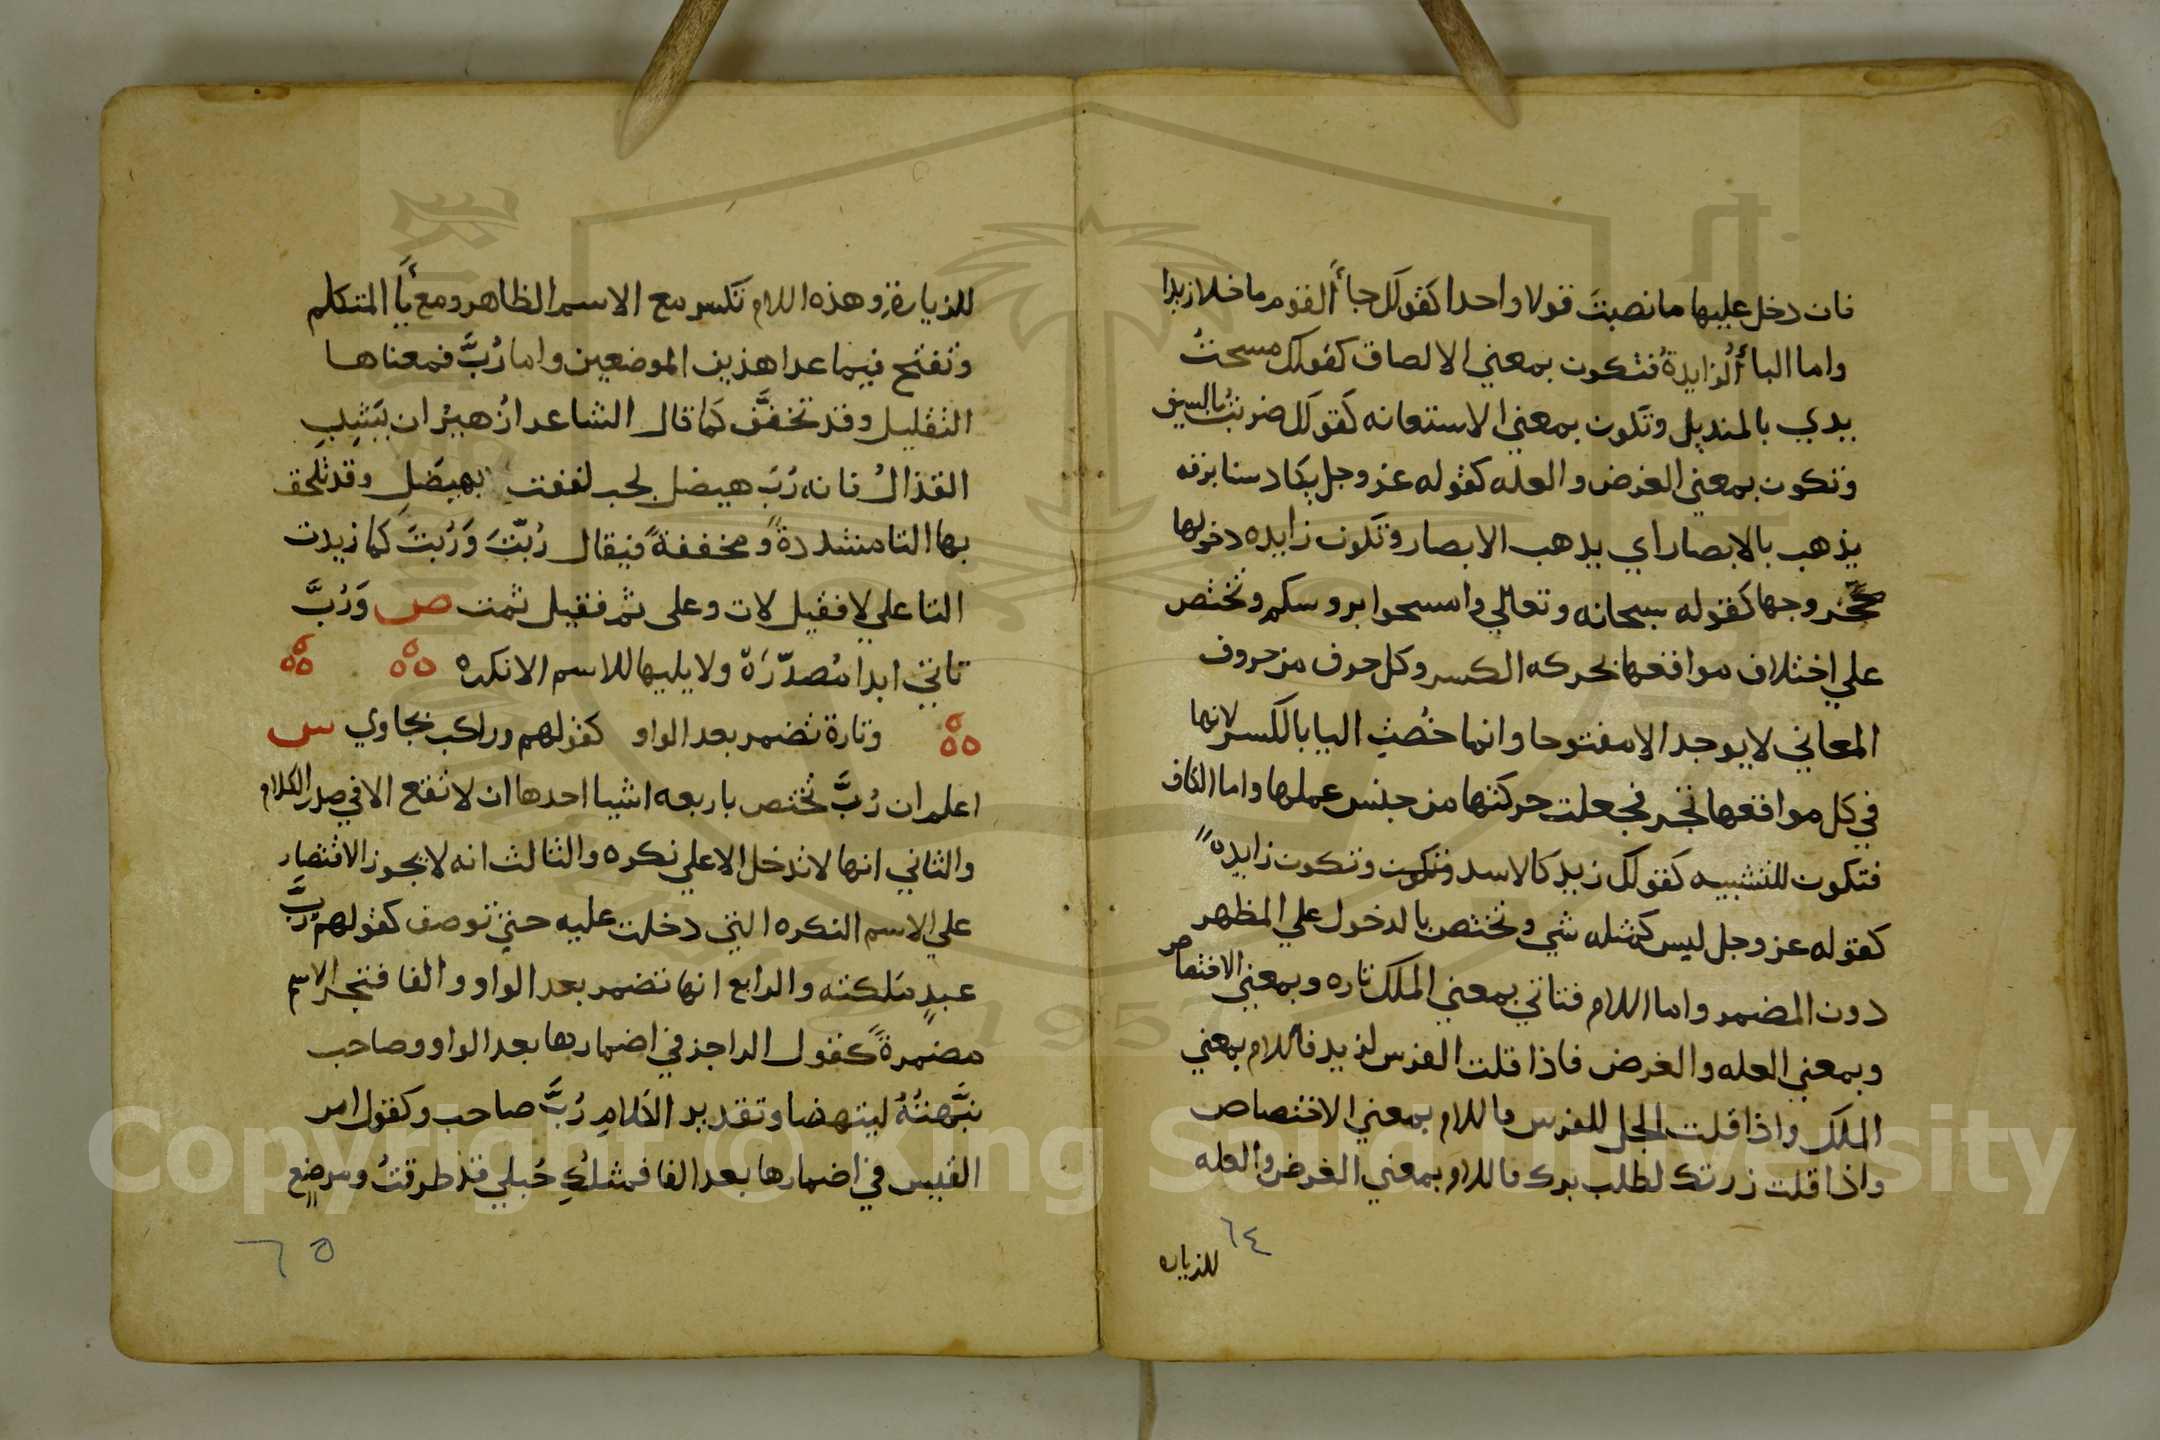 فان دخل عليها ما نصبت قولا واحدا كقولك جاأ القوم ما خلا زيدا
واما الباأ الزايدة فتكون بمعني الالصاق كقولك مسحت
يدي بالمنديل وتكون بمعني الاستعانه كقولك ضربت بالسيف
وتكون بمعني الغرض والعله كقوله عز وجل يكاد سنا برقه
يذهب بالابصار اي يذهب الابصار وتكون زايده دخولها
كخروجها كقوله سبحانه وتعالي وامسحوا بروسكم وتختص
علي اختلاف مواقعها بحركه الكسر وكل حرف من حروف
المعاني لا يوجد الا مفتوحا وانما خصت البا بالكسر لانها
في كل مواقعها تجر فجعلت حركتها من جنس عملها واما الكاف
فتكون للتشبيه كقولك زيد كالاسد وتكون وتكون زايده
كقوله عز وجل ليس كمثله شي وتختص بالدخول علي المظهر
دون المضمر واما اللام فتاتي بمعني الملك تاره وبمعني الاختصاص
وبمعني العله والغرض فاذا قلت الفرس لزيد فاللام بمعني
الملك واذا قلت الجل للفرس فاللام بمعني الاختصاص
واذا قلت زرتك لطلب برك فاللام بمعني الغرض والعله
٦٤
للزياره
للزيارة وهذه اللام تكسر مع الاسم الظاهر ومع يأ المتكلم
وتفتح فيما عدا هذين الموضعين واما رُبَّ فمعناها
التقليل وقد تخفَّف كما قال الشاعر ازهير ان يشب
القذال فانه رُبَ هيضل لجب لففت بهيضل وقد تلحق
بها التا مشددةً ومخففةً فيقال رُبَّتَ وَرُبَتَ كما زيدت
التا علي لا فقيل لات وعلى ثم فقيل ثمت ص وَرُبَّ
تاتي ابدا مُصدّرَة ولا يليها للاسم الا نكره
وتارة تضمر بعد الواو كقولهم وراكب بجاوي س
اعلم ان رُبَّ تختص باربعه اشيا احدها ان لا تقع الا في صدر الكلام
والثاني انها لا تدخل الا علي نكره والثالث انه لا يجوز الاقتصار
علي الاسم النكره التي دخلت عليه حتي توصف كقولهم رُبَّ
عبدٍ ملكته والرابع انها تضمر بعد الواو والفا فتجر الاسم
مضمرةً كقول الراجز في اضمارها بعد الواو وصاحب
نبَّهتُهُ لينهضا وتقدير الكلام رُبَّ صاحب وكقول امر
القيس في اضمارها بعد الفا فمثلكِ حُبلي قد طرقتُ ومرضع
٦٥
Copyright © King Saud University
1957